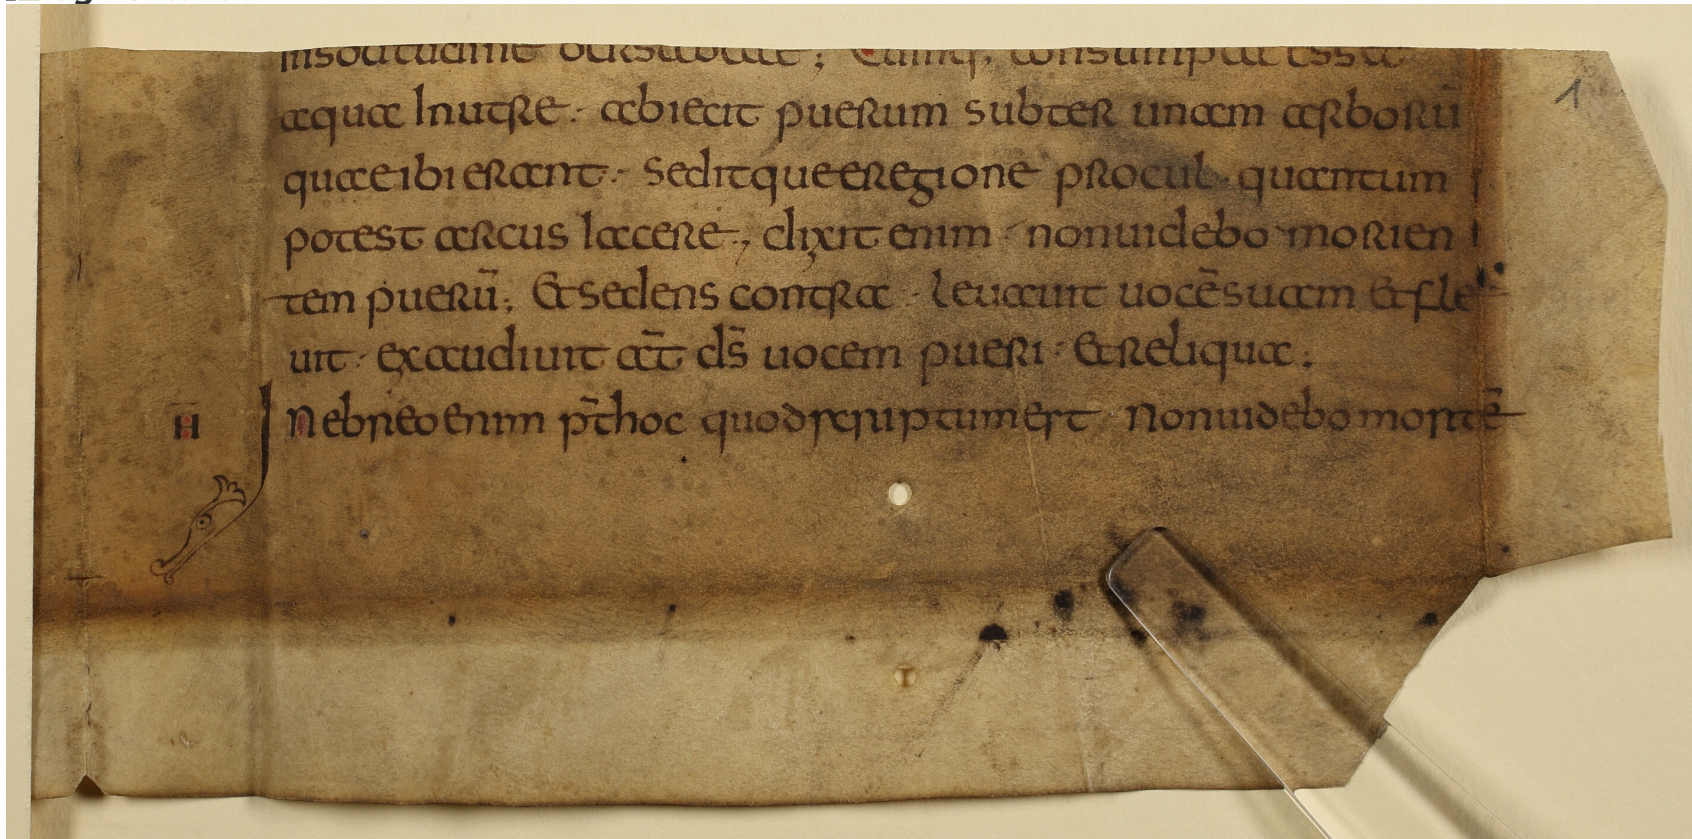 insolitudine bersabeae; Cumq; consumpta esset
aqua Inutre· abiecit puerum subter unam arborū
quaeibi erant·  seditque eregione procul· quantum
potest arcus Iacere, dixit enim· nonuidebo morien
tem puerū; Et sedens contra· leuauit uocēsuam Etfle
uit· exaudiuit aūt ds̄ uocem pueri· Etreliqua;
H̄ Inebreo enim p̄thoc quodscriptumest· Nonuidebo mortē
1